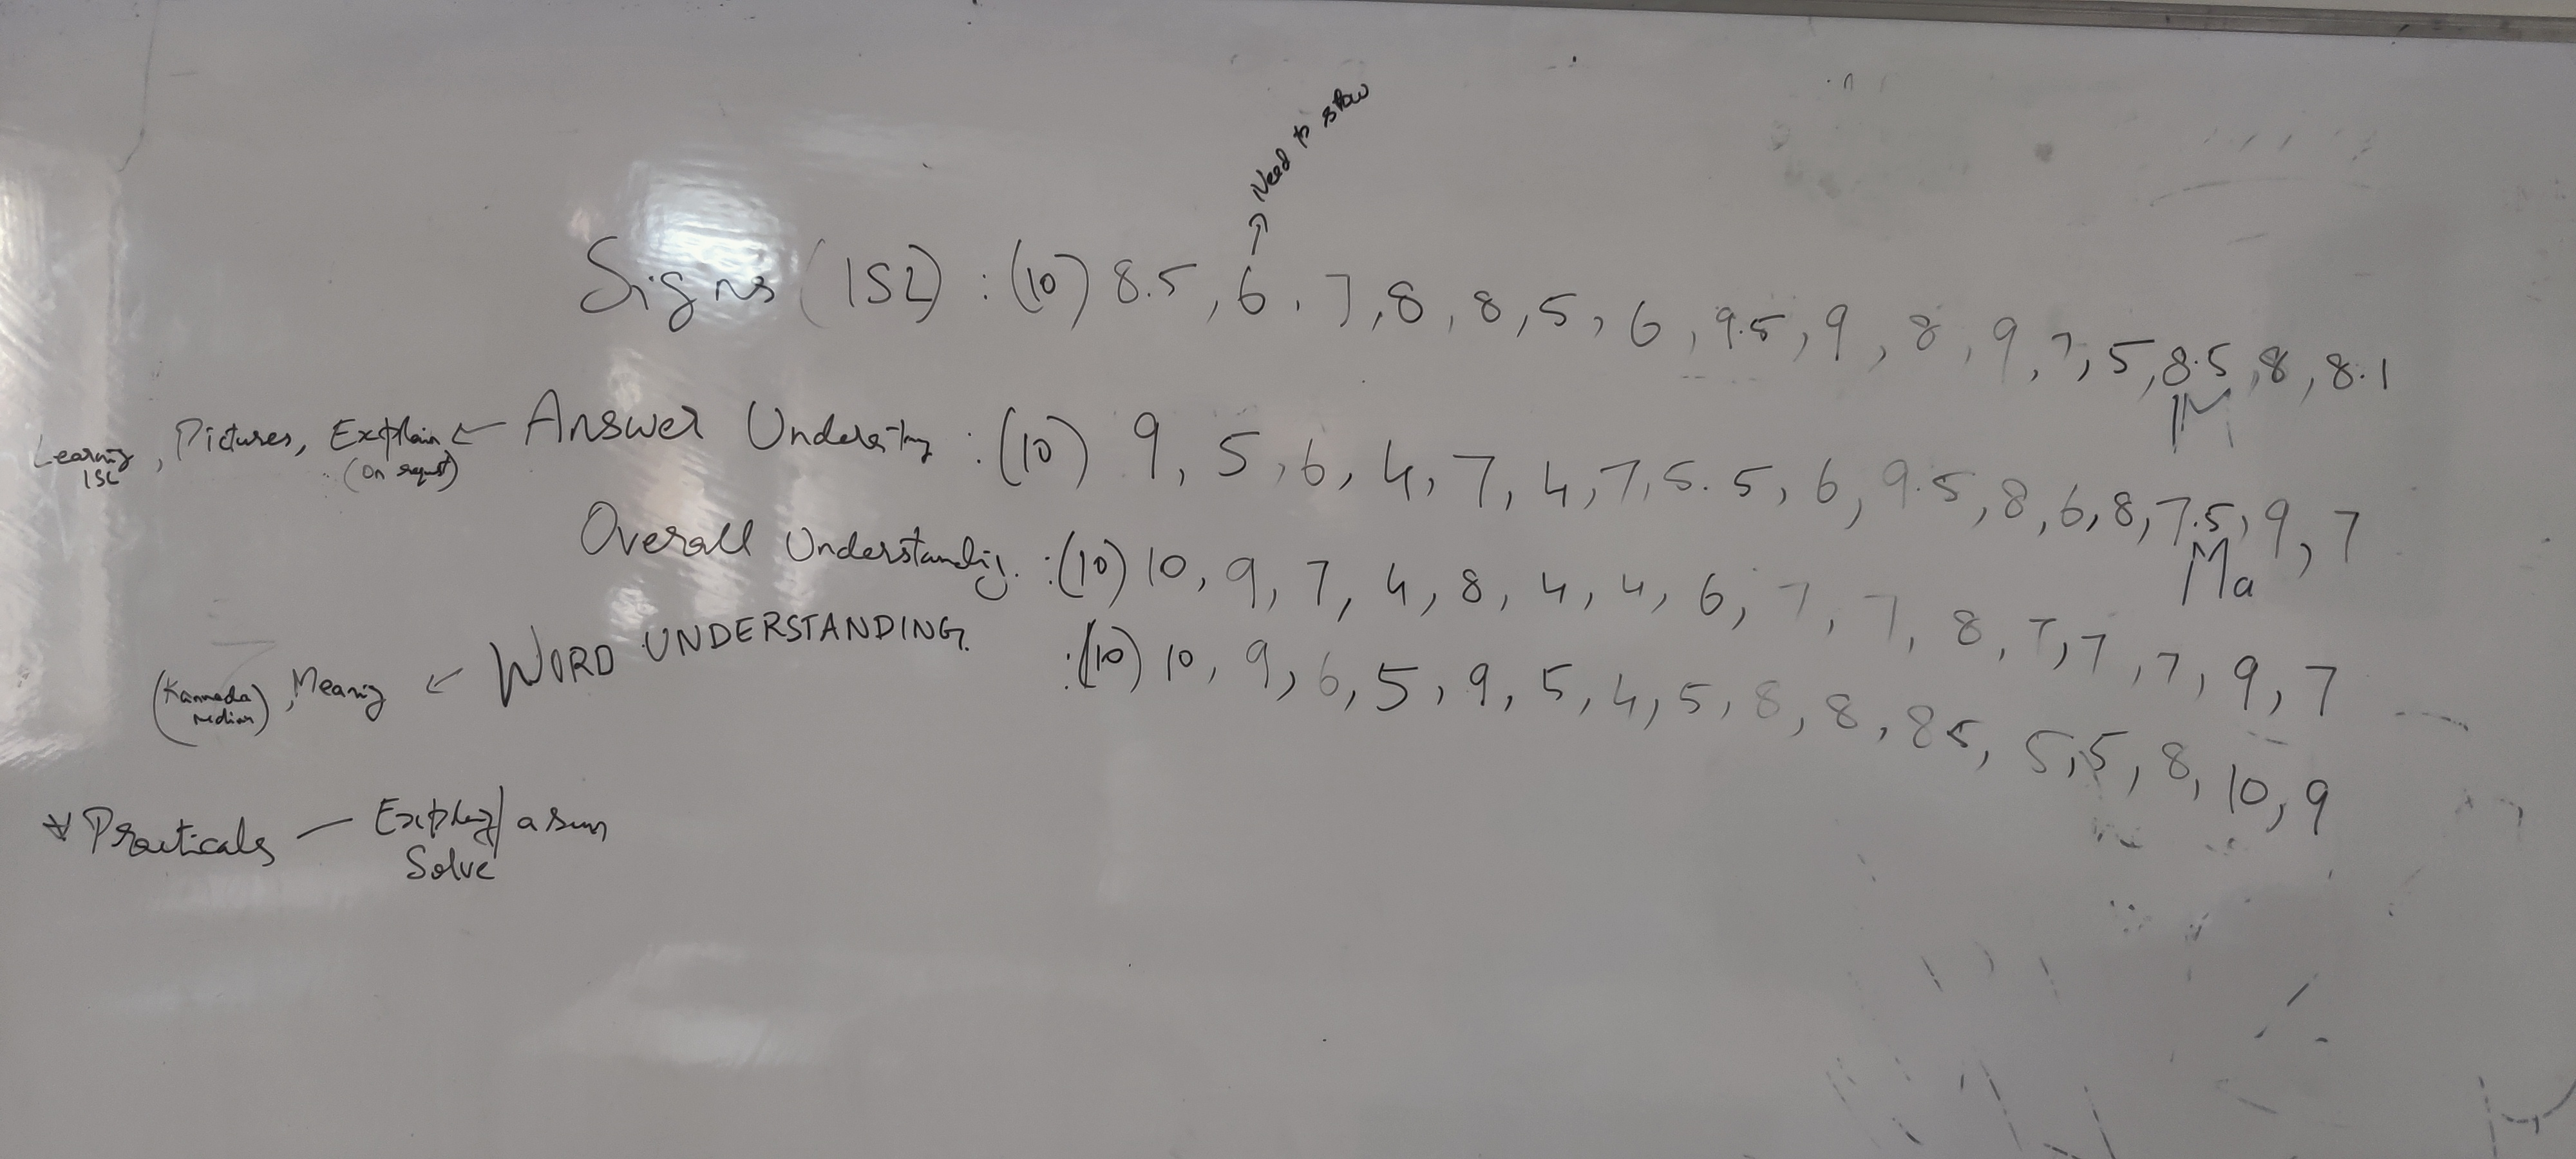 Need to slow
Signs (ISL) : (10) 8.5, 6, 7, 8, 8, 5, 6, 9.5, 9, 8, 9, 7, 5, 8.5, 8, 8.1
M
Learning ISL, Pictures, Explain (on request) ← Answer Understing : (10) 9, 5, 6, 4, 7, 4, 7, 5.5, 6, 9.5, 8, 6, 8, 7.5, 9, 7
Ma
Overall Understanding. : (10) 10, 9, 7, 4, 8, 4, 4, 6, 7, 7, 8, 7, 7, 7, 9, 7
(Kannada median), Meaning ← WORD UNDERSTANDING. : (10) 10, 9, 6, 5, 9, 5, 4, 5, 8, 8, 8.5, 5, 5, 8, 10, 9
* Practicals — / a sum
Solve